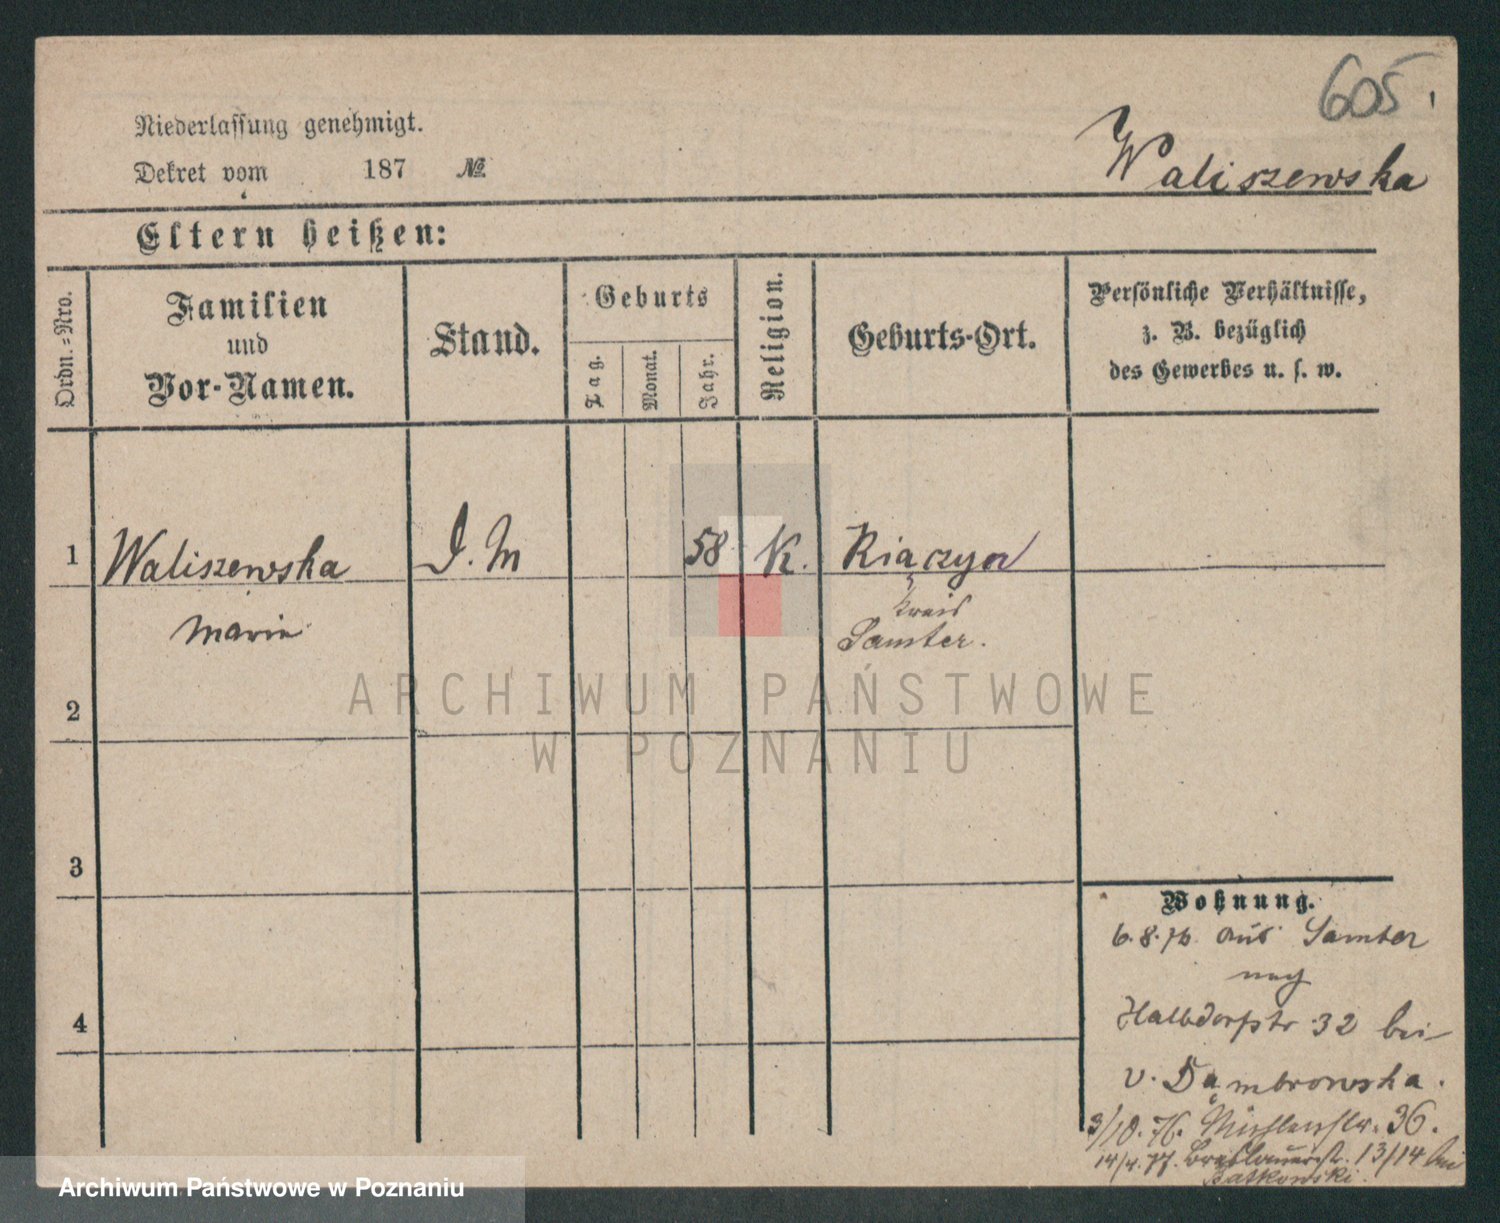 605.
Niederlassung genehmigt.
Dekret vom 187 №
Waliszewska
Eltern heißen:
Ordn.-Nro.
Familien
und
Vor-Namen.
Stand.
Geburts
Tag.
Monat.
Jahr.
Religion.
Geburts-Ort.
Persönliche Verhältnisse,
z. B. bezüglich
des Gewerbes u. s. w.
1 Waliszewska D. M 58 K.
Marie
Kreis
Samter.
2
3
4
Wohnung.
6.8.76 aus Samter
nach
Halbdorfstr 32 bei
v. Dąmbrowska.
3/10.76. Mühlenstr. 36.
14/4.77. Breslauerstr. 13/14 bei
ARCHIWUM PAŃSTWOWE
W POZNANIU
Archiwum Państwowe w Poznaniu